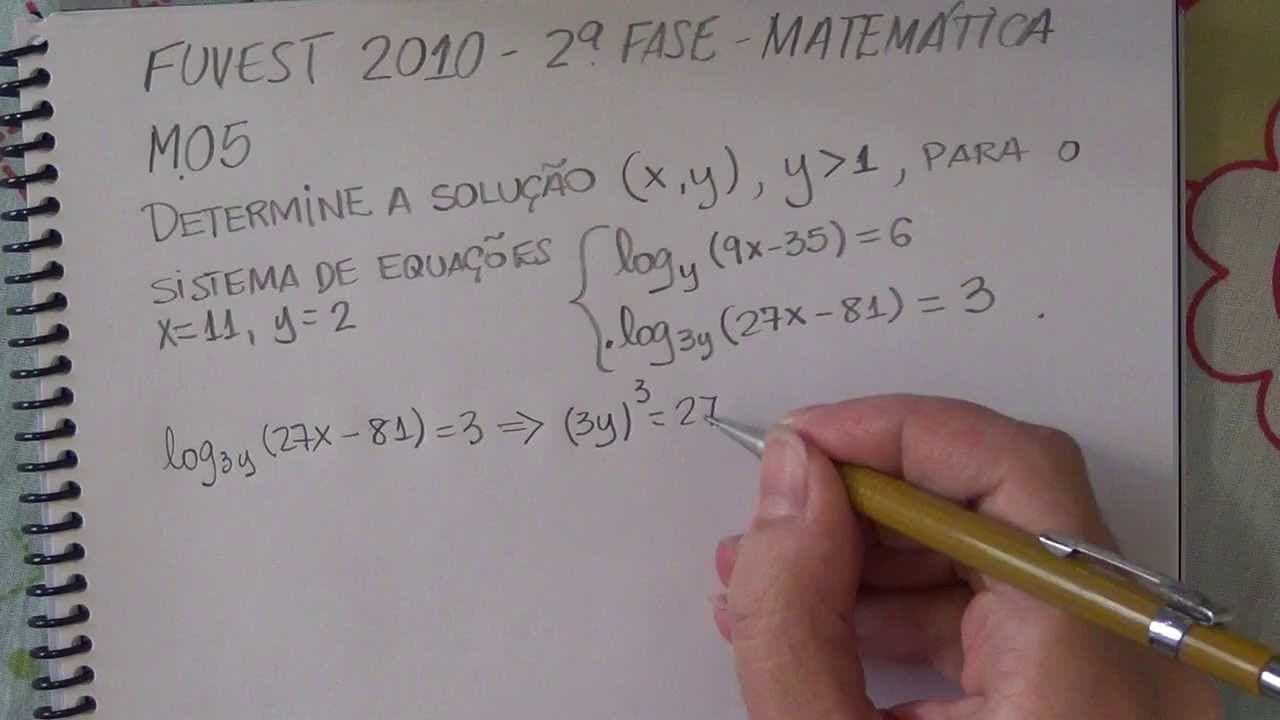 FUVEST 2010 - 2ª FASE - MATEMÁTICA
M.05
DETERMINE A SOLUÇÃO (x,y), y>1, PARA O
SISTEMA DE EQUAÇÕES { log_y (9x-35) = 6
x=11, y=2
log_3y (27x-81) = 3 .
log_3y (27x-81) = 3 ⇒ (3y)³ = 27